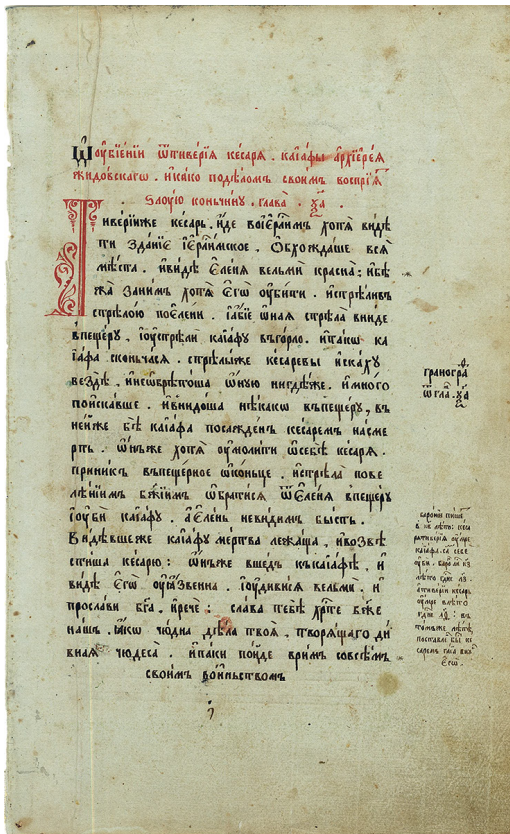 Ѿ оубїенїи ѿ тиверїѧ ке́сарѧ . каїа́фы а҆рхїере́ѧ
жидо́вскагѡ . и҆ ка́ко подѣло́мъ свои́мъ воспрїѧ̀
ѕлоую̀ коньчи́ну . глава̀ . ча҃ .
Тиверїи же ке́сарь . и҆́де во і҆ерⷭ҇лимъ хотѧ̀ видѣ
ти зда́нїе і҆ерⷭ҇лимское . ѡ҆бхожда́ше всѧ̀
мѣста . и҆ ви́дѣ є҆ле́нѧ вельмѝ кра́сна ; и҆ бѣ
жа̀ за ни́мъ хотѧ̀ є҆гѡ̀ оу҆би́ти . и҆ стрѣли́въ
стрѣло́ю по є҆ле́ни . і҆ а́бїе ѡ҆́наѧ стрѣла̀ вни́де
в пеще́ру , і҆ оу҆стрѣлѝ каїа́фу въ го́рло . и҆ та́кѡ ка
їа́фа сконча́сѧ . стрѣлы́ же ке́саревы и҆ска́ху
вездѣ̀ , и҆ не ѡ҆брѣто́ша ѡ҆́ную нигдѣ́же . и҆ мно́го
поиска́вше . и҆ внидо́ша нѣ́какѡ въ пеще́ру , въ
не́йже бѣ̀ каїа́фа посажде́нъ ке́саремъ на сме
рть . ѡ҆́нъ же хотѧ̀ оу҆моли́ти ѡ҆ себѣ̀ ке́сарѧ .
прини́къ въ пеще́рное ѡ҆ко́нце , и҆ стрѣла̀ пове
лѣ́нїимъ бж҃їимъ ѡ҆брати́сѧ ѿ є҆ле́нѧ в пеще́ру
і҆ оу҆бѝ каїа́фу . а҆ є҆ле́нь неви́димъ бы́сть .
Ви́дѣвше же каїа́фу ме́ртва лежа́ща , и҆ возвѣ
сти́ша ке́сарю : ѡ҆́нъ же вше́дъ къ каїа́фѣ , и҆
ви́дѣ є҆гѡ̀ оу҆ѧ́звенна . і҆ оу҆диви́сѧ вельмѝ . и҆
просла́ви бг҃а , и҆ речѐ : сла́ва тебѣ̀ хрⷭ҇тѐ бж҃е
на́шъ . ꙗ҆́кѡ чю́дна дѣла̀ твоѧ̀ , творѧ́щагѡ ди
внаѧ чюдеса̀ . и҆ па́ки по́йде в ри́мъ со всѣ́мъ
свои́мъ во́йньствомъ
граногра́ѳ
ѿ гла . ча҃
баро́нїи пи́шеⷮ
в кв лѣ́то : ке́са
рѧ тиве́рїѧ оу҆́мре
каїа́фа . са́ себѐ
оу҆бѝ .
а҆ тиве́рїи ке́сарь
оу҆́мре в лѣ́то
гдⷭ҇не ло҃ : въ
то́мъ же лѣ́тѣ ,
поста́вле бы́ ке
саремъ га́їа вну
є҆гѡ̀ .